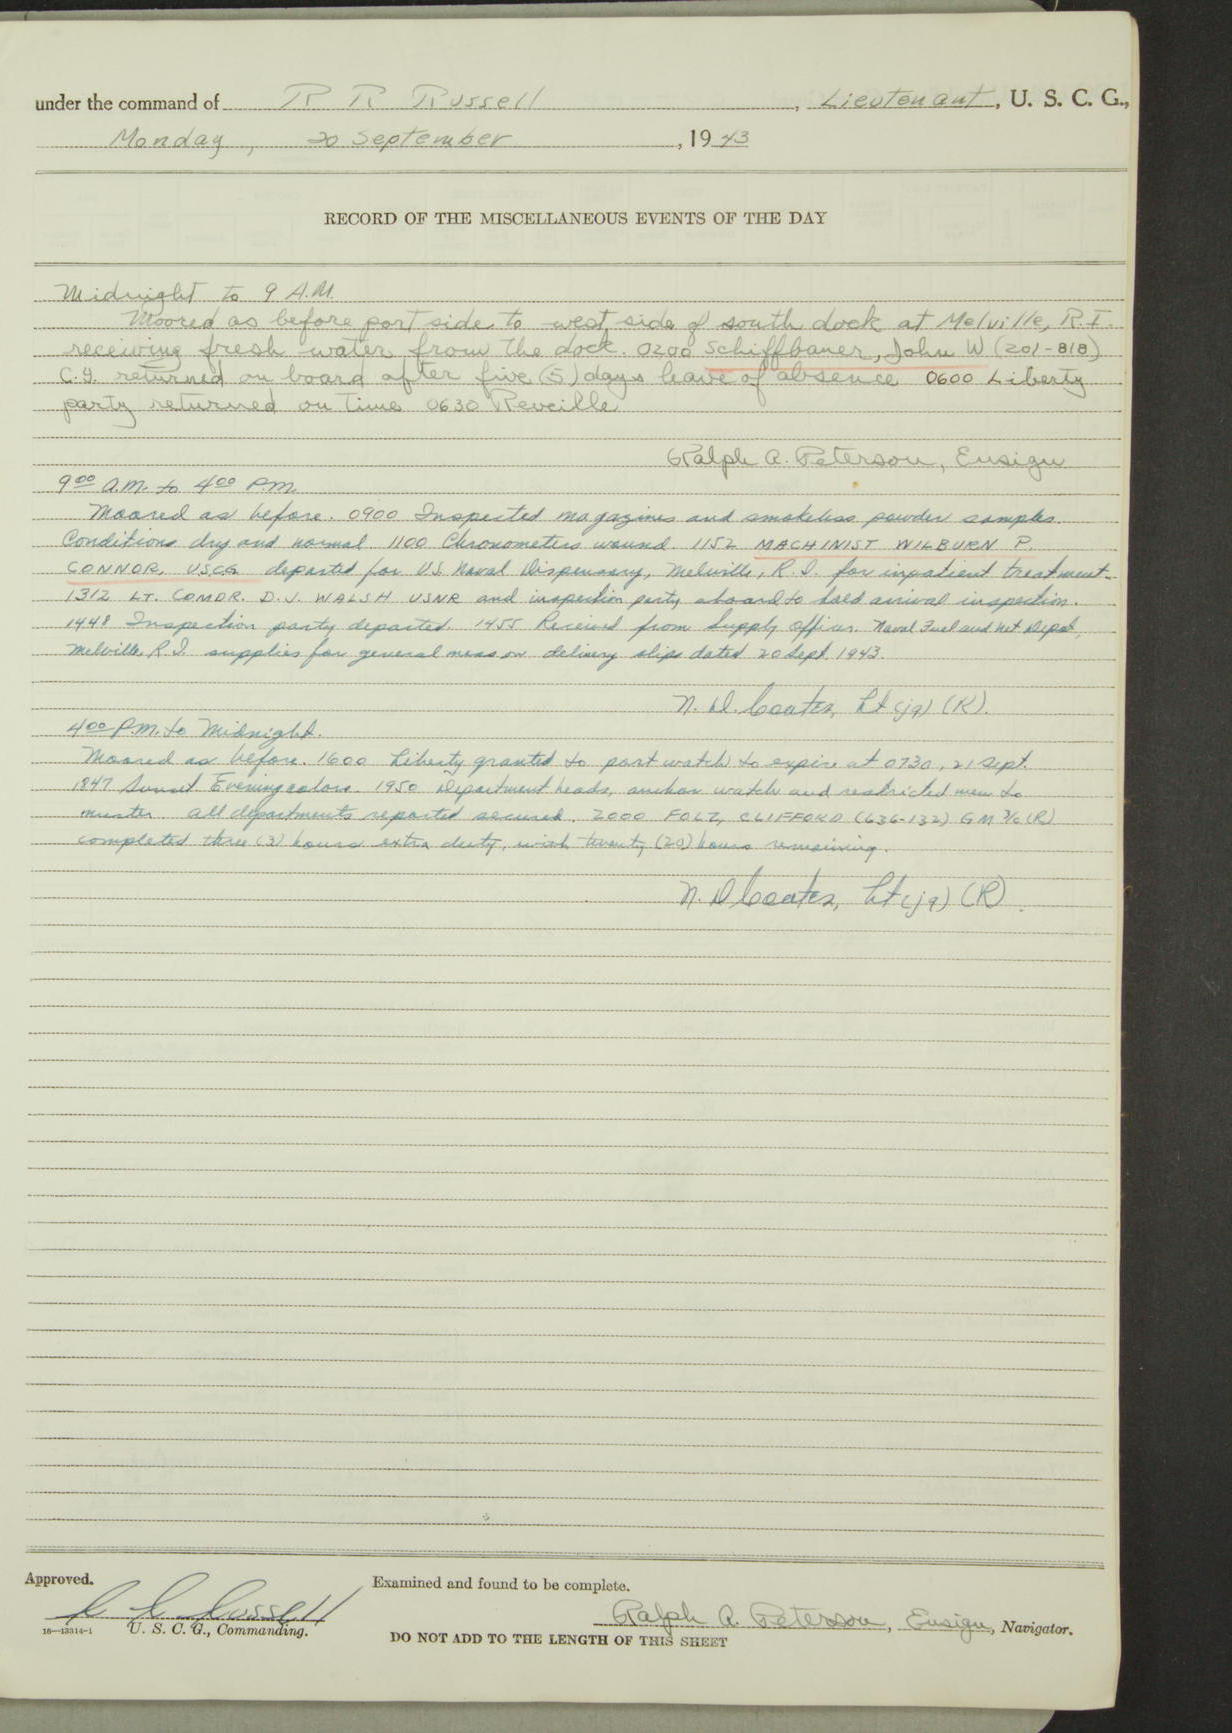 under the command of R R Russell, Lieutenant, U. S. C. G.,
Monday, 20 September, 1943
RECORD OF THE MISCELLANEOUS EVENTS OF THE DAY
Midnight to 9 A.M.
Moored as before port side to west side of south dock at Melville, R.I.
receiving fresh water from the dock. 0200 Schiffbauer, John W (201-818)
C.Y. returned on board after five (5) days leave of absence 0600 Liberty
party returned on time 0630 Reveille
Ralph A. Peterson, Ensign
9 00 a.m. to 4 00 P.M.
Moored as before. 0900 Inspected magazines and smokeless powder samples.
Conditions dry and normal 1100 Chronometers wound. 1152 MACHINIST WILBURN P.
CONNOR, USCG departed for U.S. Naval Dispensary, Melville, R.I. for inpatient treatment.
1312 LT. COMDR. D. J. WALSH USNR and inspection party aboard to hold arrival inspection.
1448 Inspection party departed. 1455 Received from Supply Officer. Naval Fuel and Net Depot,
Melville, R.I. supplies for general mess on delivery slips dated 20 Sept. 1943.
N. D. Coates, Lt (jg) (R).
4 00 P.M. to Midnight.
Moored as before. 1600 Liberty granted to port watch to expire at 0730, 21 Sept.
1847 Sunset Evening colors. 1950 Department heads, anchor watch and restricted men to
muster. All departments reported secured. 2000 FOLTZ, CLIFFORD (636-132) GM 3/c (R)
completed three (3) hours extra duty, with twenty (20) hours remaining.
N. D Coates, Lt (jg) (R).
Approved.
Examined and found to be complete.
R R Russell
Ralph A. Peterson, Ensign, Navigator.
16—13314-1 U. S. C. G., Commanding.
DO NOT ADD TO THE LENGTH OF THIS SHEET